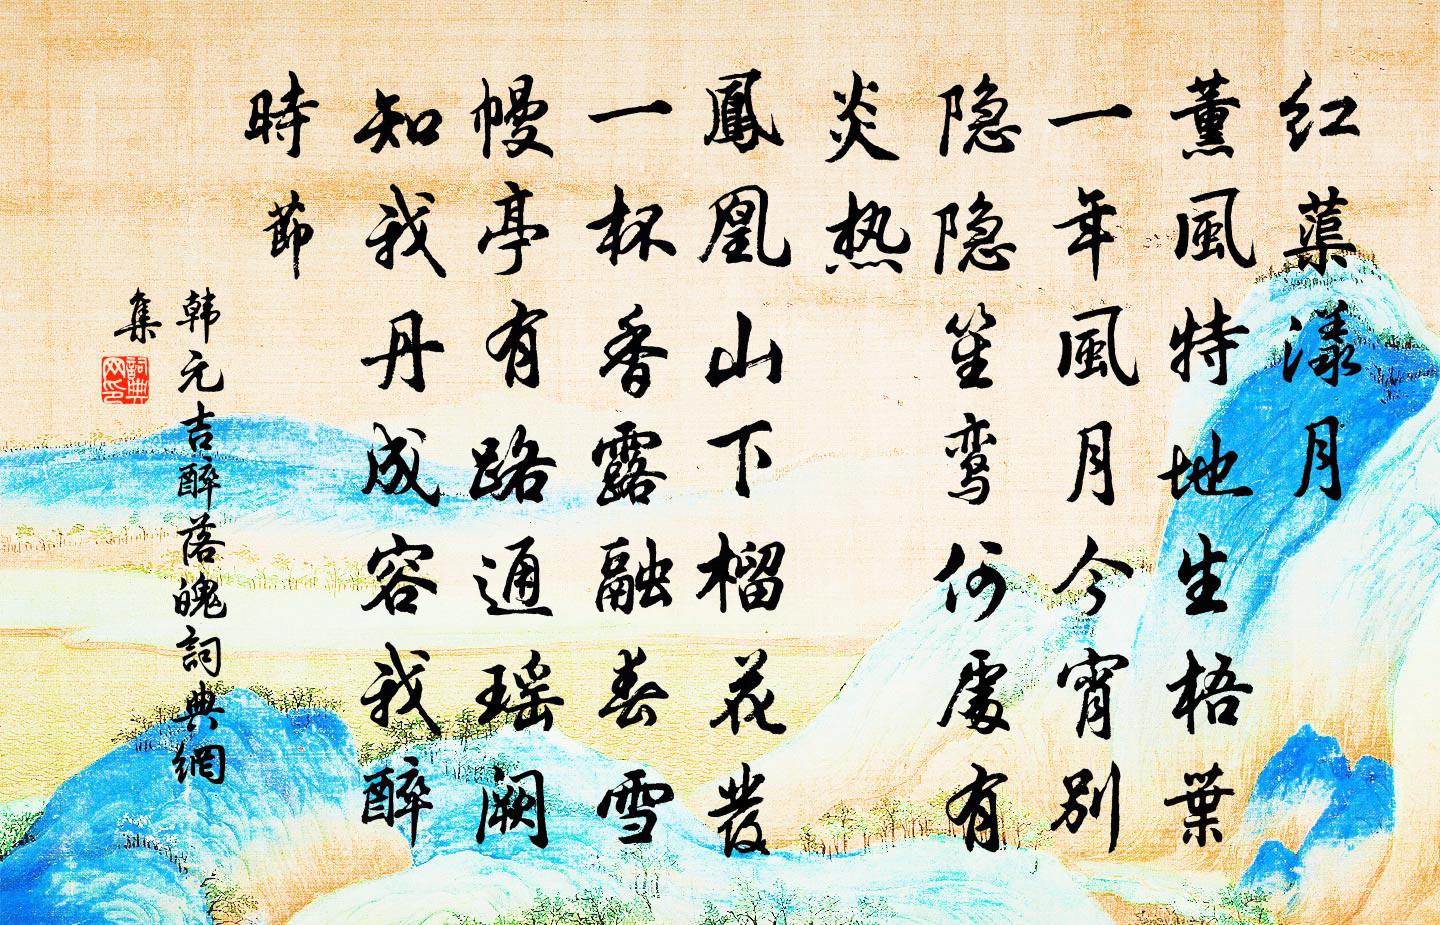 红蕖漾月
薰風特地生梧葉
一年風月今宵别
隐隐笙鸾何處有
炎热
鳳凰山下榴花發
一杯香露融春雪
幔亭有路通瑶阙
知我丹成容我醉
時節
韩元吉醉落魄詞典網
集
詞典网印